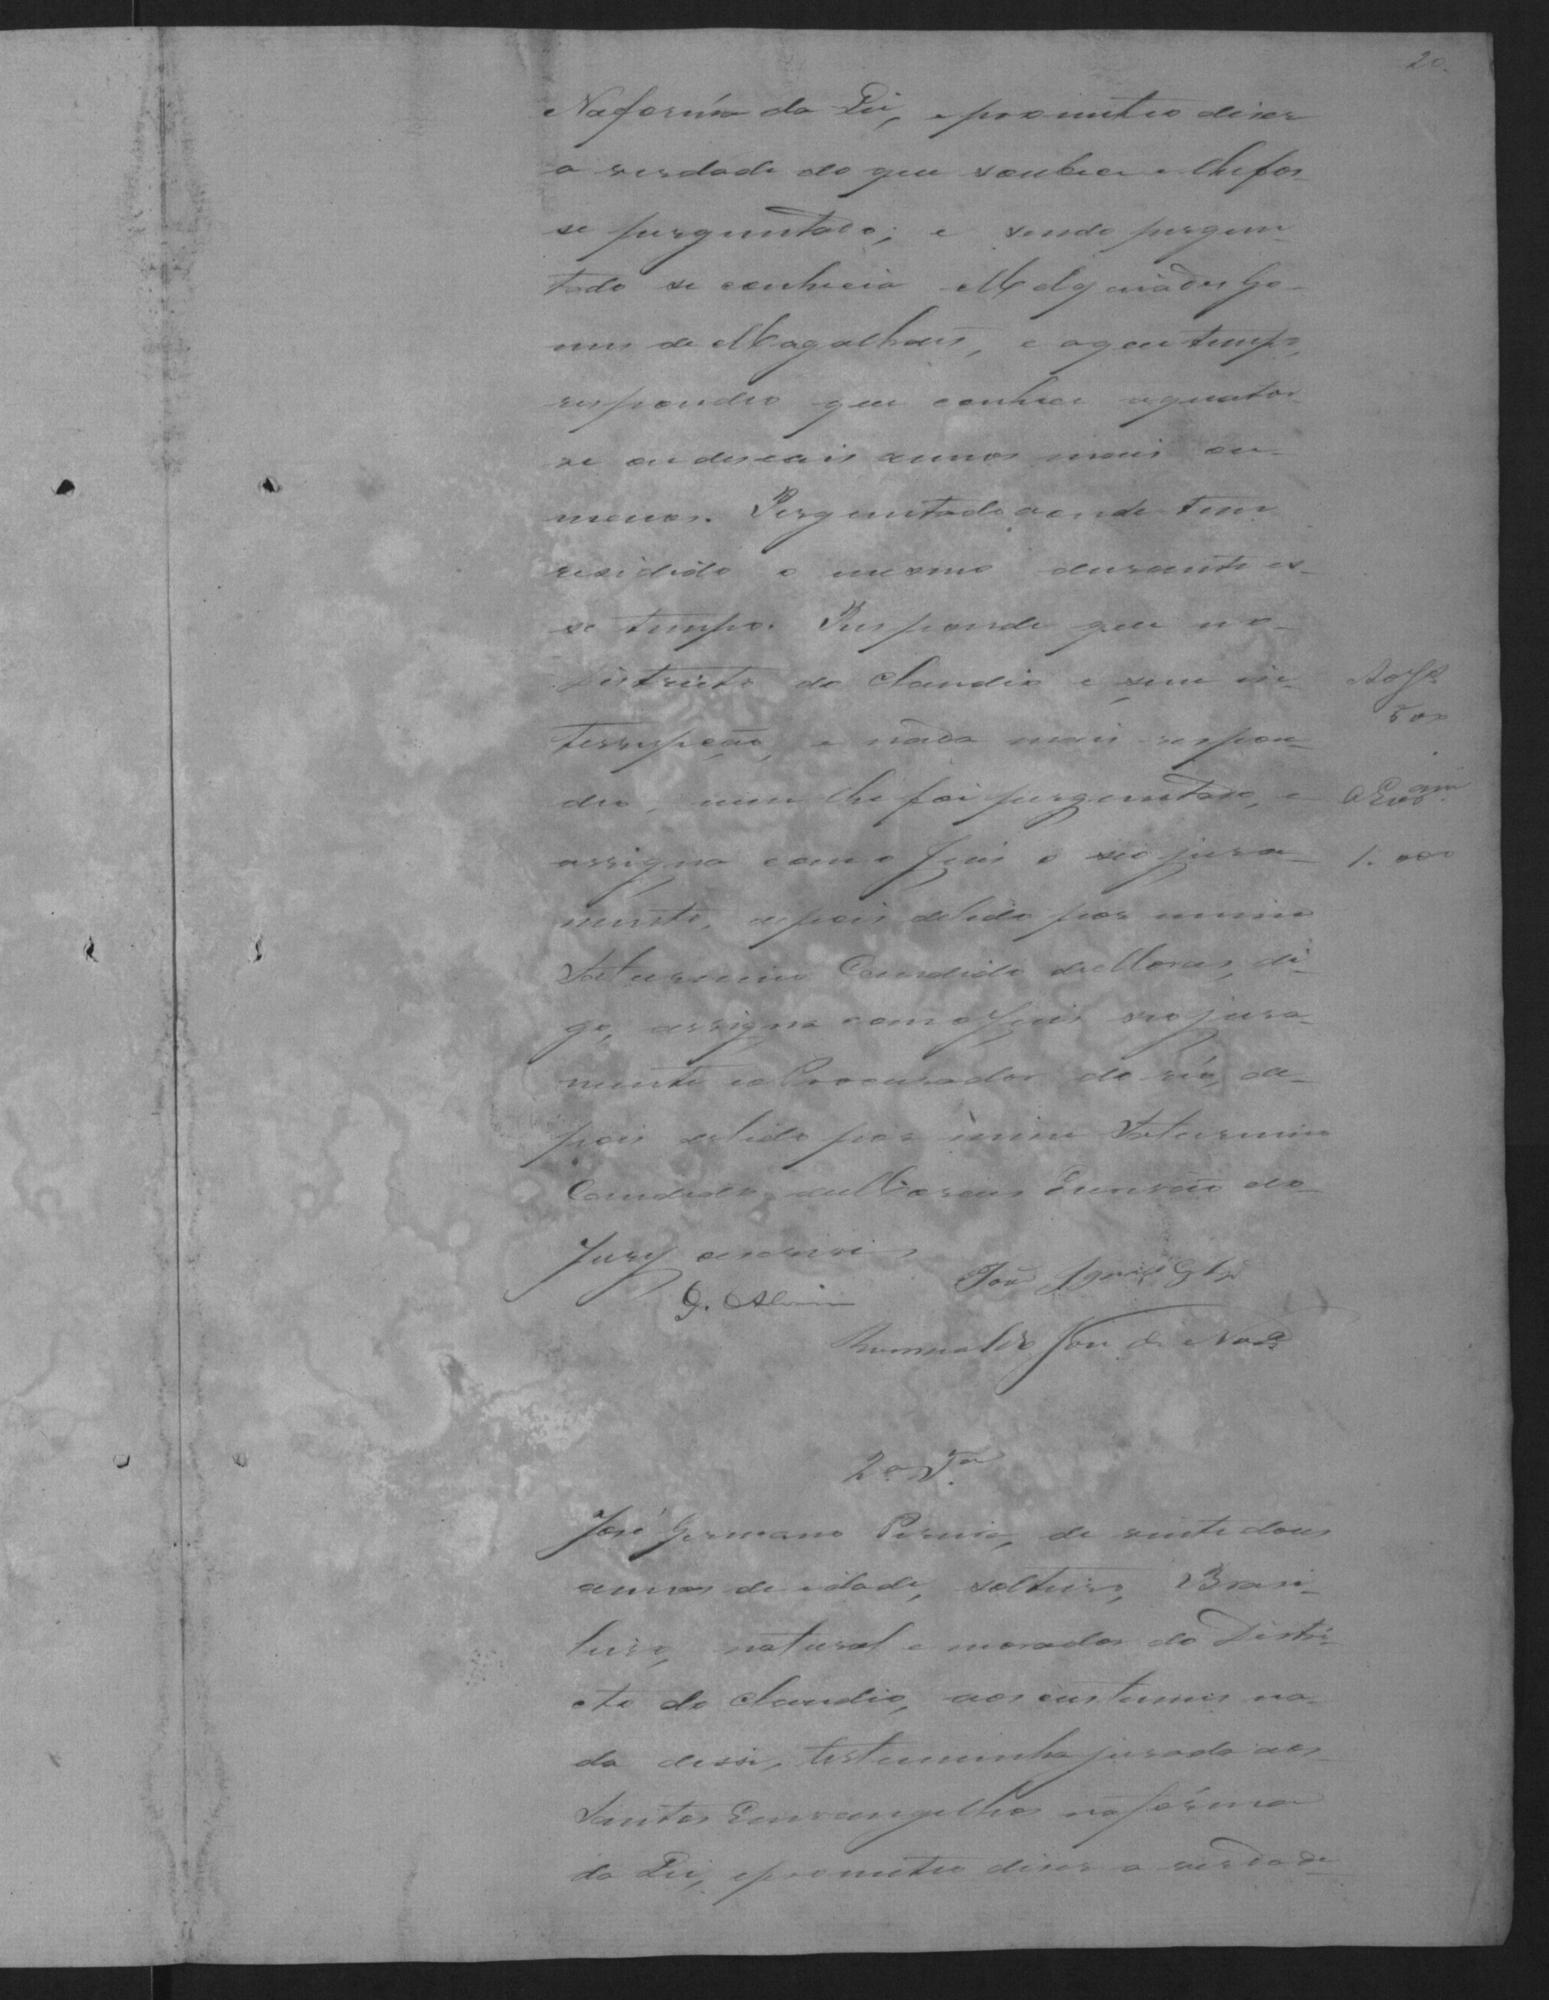 20.
Na forma da Lei, e prometeo diser
a verdade do que soubece e lhe fos-
se perguntado; e sendo pergun-
tado se conhecia Melquiades Go-
mes de Magalhães, e a que tempo,
respondeo que conhece a quator-
se ou deseceis annos mais ou
menos. Perguntado aonde tem
residido o mesmo durante es-
se tempo. Responde que no
Districto do Claudio e sem in-
terrupção, e nada mais respon-
deo, nem lhe foi perguntado, e
assigna com o Juis o seo jura-
mento, depois de lido por mim
Saturnino Candido de Moraes, di-
go, assigna com o Juis seo jura-
mento e o Procurador do réo, de-
pois de lido por mim Saturnino
Candido de Moraes Escrivão do
Jury o escrevi
500
1.000
G. Alvim
João Ignacio
Romualdo José de
2.ª T.ª
José Germano Pereira, de vinte dous
annos de idade, solteiro, Brasi-
leiro, natural e morador do Distri-
cto do Claudio, aos custumes na-
da disse, testemunha jurada aos
Santos Envangelhos na fórma
da Lei, e prometeo diser a verdade